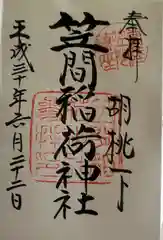 奉拝
胡桃下
笠間稲荷神社
平成三十年六月二十二日